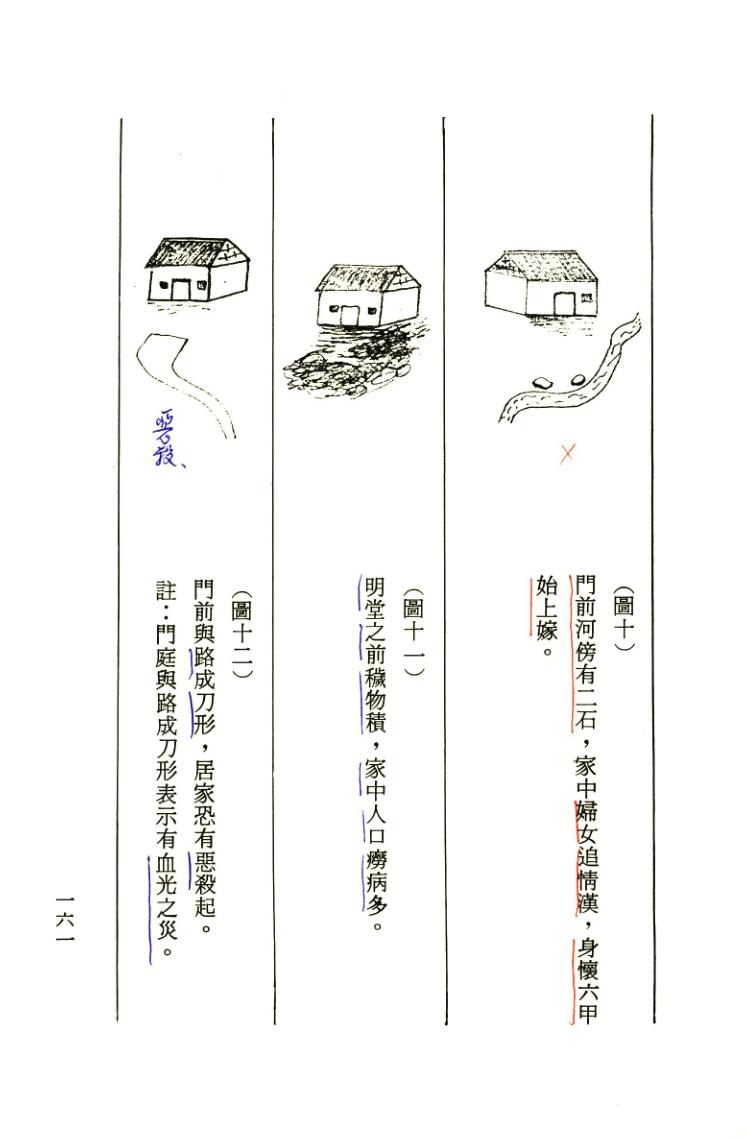 （圖十）
門前河傍有二石，家中婦女追情漢，身懷六甲
始上嫁。
（圖十一）
明堂之前穢物積，家中人口癆病多。
（圖十二）
門前與路成刀形，居家恐有惡殺起。
註：門庭與路成刀形表示有血光之災。
一六一